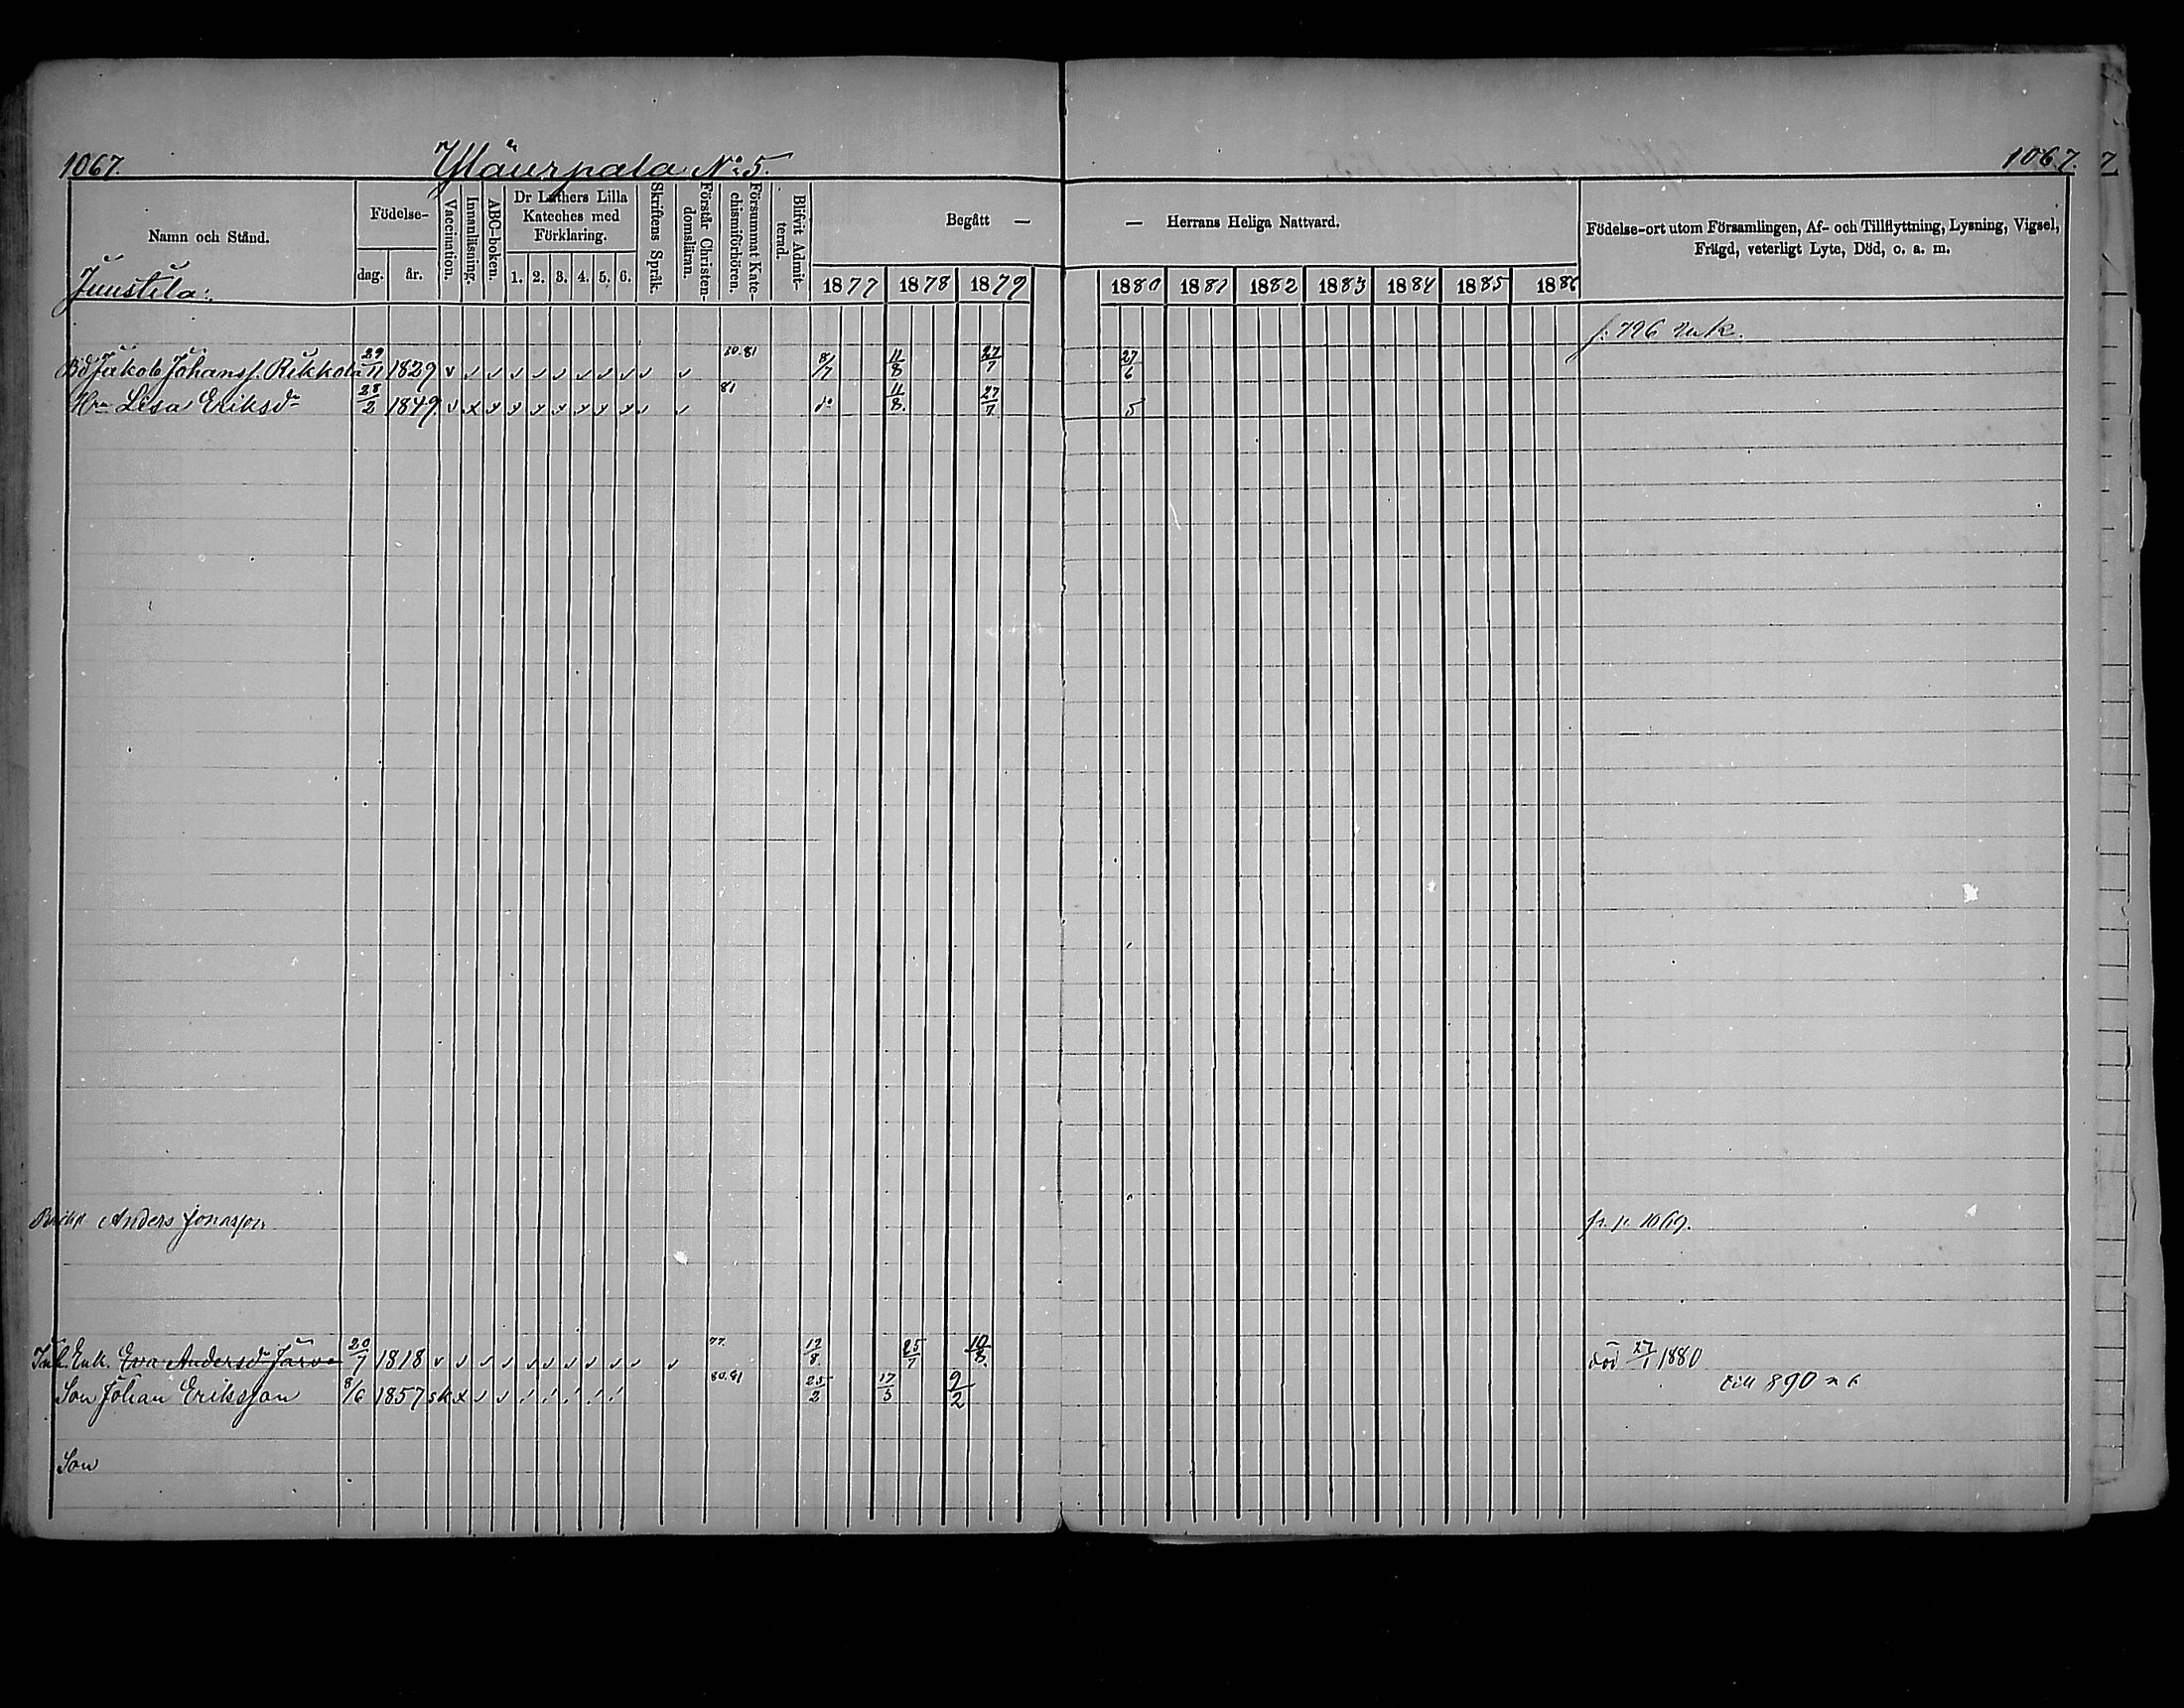 1067. Yläurpala No 5. 1067.
Namn och Stånd. Födelse- dag. år. Vaccination. Innanläsning. ABC-boken. Dr Luthers Lilla Kateches med Förklaring. 1. 2. 3. 4. 5. 6. Skriftens Språk. Förstår Christendomsläran. Försummat Katechismiförhören. Blifvit Admitterad. Begått — — Herrans Heliga Nattvard. Födelse-ort utom Församlingen, Af- och Tillflyttning, Lysning, Vigsel, Frägd, veterligt Lyte, Död, o. a. m.
1877 1878 1879 1880 1881 1882 1883 1884 1885 1886
Juustila:
f. 796
Bd Jakob Johanss. Rikkola 29/11 1829 v v v v v v v v v v v 80.81 8/7 11/8 27/7 27/6
Hu Lisa Eriksdr 28/2 1849 v x v v v v v v v v v 81 do 11/8 27/7 5
Anders Jonasson fr. p. 1069.
Inh. Enk. Eva Andersdr Järvo 20/7 1818 v v v v v v v v v v v 77. 12/8 25/7 10/8 död 27/1 1880
Son Johan Eriksson 8/6 1857 sk x v v / / / / / 80.81 25/2 17/3 9/2 till 890
Son